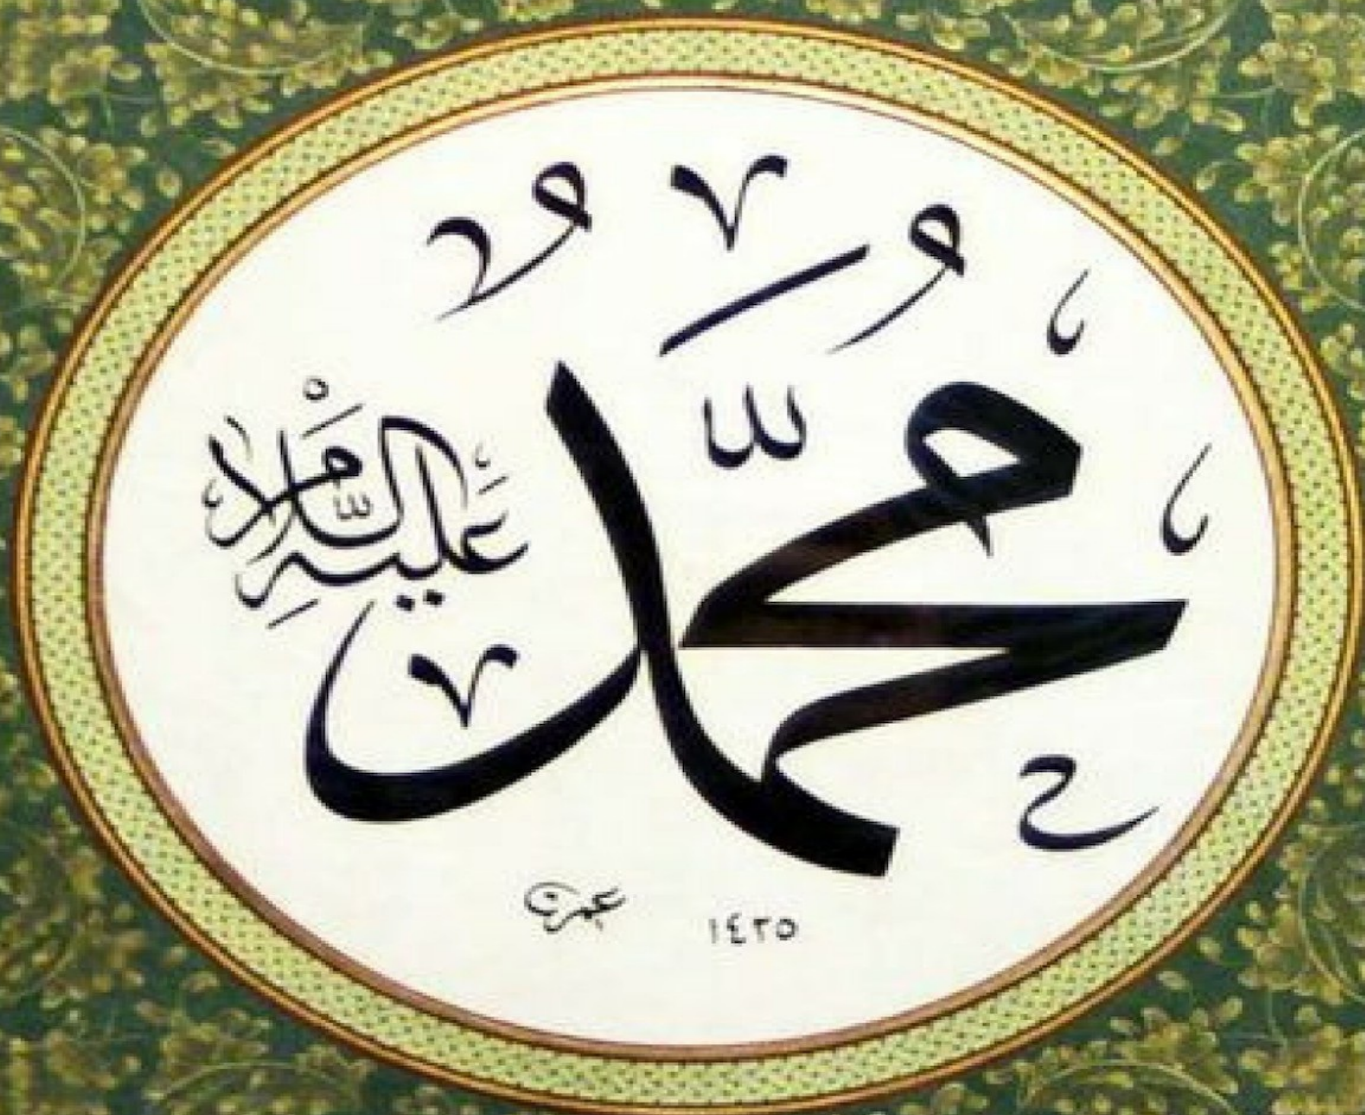 مُحَمَّدٌ
عَلَيْهِ السَّلَامْ
١٤٢٥